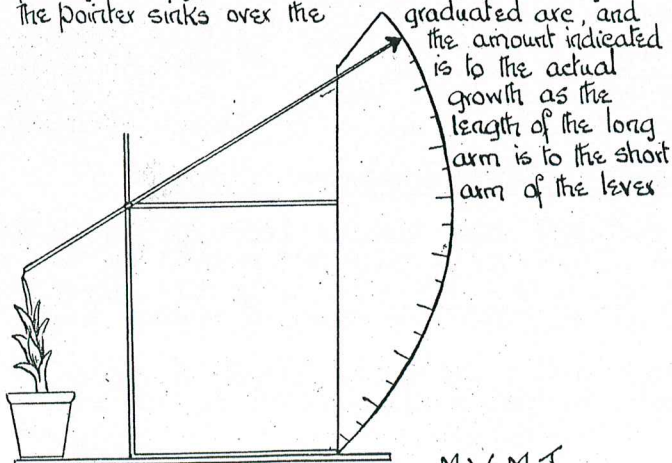 the pointer sinks over the graduated arc, and
the amount indicated
is to the actual
growth as the
length of the long
arm is to the short
arm of the lever
M.V.M.T.